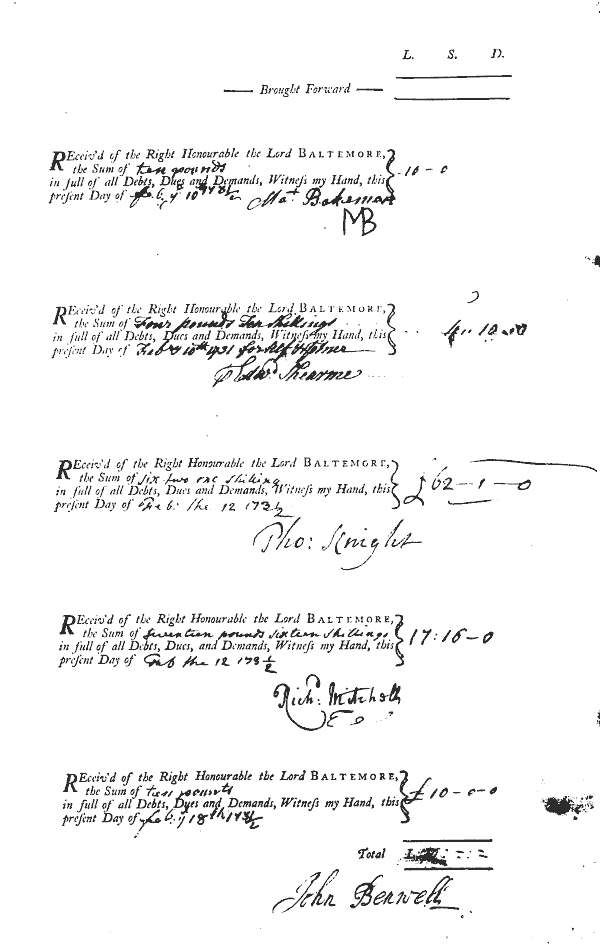 L. S. D.
Brought Forward
REceiv'd of the Right Honourable the Lord BALTEMORE,
the Sum of ten pounds
in full of all Debts, Dues and Demands, Witneſs my Hand, this
preſent Day of feb: y 10th 173½
10-0
Mat Bakeman
MB
REceiv'd of the Right Honourable the Lord BALTEMORE,
the Sum of Four pounds Ten Shillings
in full of all Debts, Dues and Demands, Witneſs my Hand, this
preſent Day of Feb: 10th 1731 for Self &
4:10:0
Edwd Shearme
REceiv'd of the Right Honourable the Lord BALTEMORE,
the Sum of six two one shilling
in full of all Debts, Dues and Demands, Witneſs my Hand, this
preſent Day of Feb: the 12 173½
£62-1-0
Tho: Knight
REceiv'd of the Right Honourable the Lord BALTEMORE,
the Sum of Seventeen pounds sixteen shillings
in full of all Debts, Dues, and Demands, Witneſs my Hand, this
preſent Day of Feb the 12 173½
17:16-0
Rich: Mitchell
REceiv'd of the Right Honourable the Lord BALTEMORE,
the Sum of ten pounds
in full of all Debts, Dues and Demands, Witneſs my Hand, this
preſent Day of feb: y 18th 173½
£10-0-0
Total
John Benwell